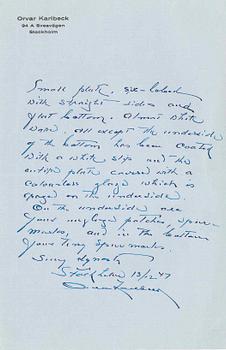 Orvar Karlbeck
94 A Sveavägen
Stockholm
Small plate, six-lobed
with straight sides and
flat bottom. Almost white
ware. All except the underside
of the bottom has been coated
with a white slip and the
entire plate covered with a
colourless glaze which is
crazed on the underside.
On the underside are
four unglazed patches, spur-
marks, and in the bottom
four tiny spurmarks.
Sung dynasty
Stockholm 13/12 47
Orvar Karlbeck